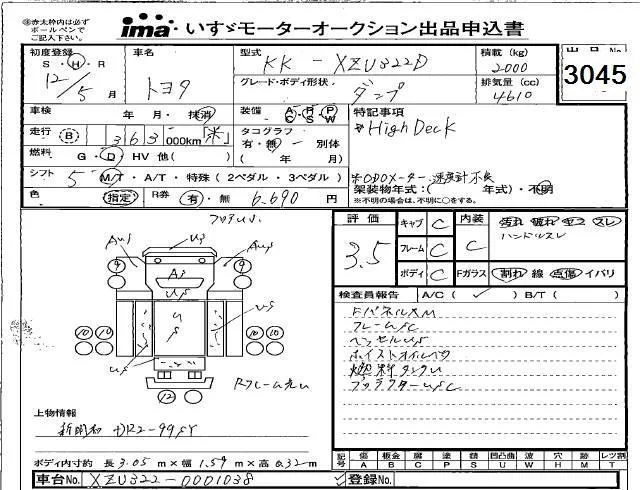 ※赤太枠内は必ず
ボールペンで
ご記入下さい。
ima いすゞモーターオークション出品申込書
初度登録 S・H・R 12/5月
車名 トヨタ
型式 KK-XZU322D
積載(kg) 2000
出品No. 3045
グレード・ボディ形状 ダンプ
排気量(cc) 4610
車検 年・月・抹消
装備 A/C P/S P/W
特記事項
*High Deck
走行 B 363 000km「米」
タコグラフ 有・無 別体 ( 年 月)
燃料 G・D・HV 他( )
*ODOメーター、速度計不良
シフト 5 M/T・A/T・特殊(2ペダル・3ペダル)
架装物年式:( 年式)・不明
※不明の場合は、不明に○をする。
色 指定 R券 有・無 6,690 円
フロアUS
AUS US AUS
9 9
AS
US
US
US
10 10 10 10
US
12
Rフレーム先U
評価 3.5
キャブ C
フレーム C
ボディ C
内装 C
汚れ 破れ コゲ スレ
ハンドルスレ
Fガラス 割れ 線 点傷 イバリ
検査員報告 A/C( ✓ ) B/T( )
FパネルXM
フレームSC
ベッセルUS
ホイストオイルベタ
燃料タンクU
プロテクターUSC
上物情報
新明和 DR2-99SY
ボディ内寸約 長3.05m×幅1.59m×高0.32m
記号 傷A 板金B 腐C 塗P 錆S 凹凸曲U 波W 穴H 跡M レツ割T
車台No. XZU322-0001038
登録No.